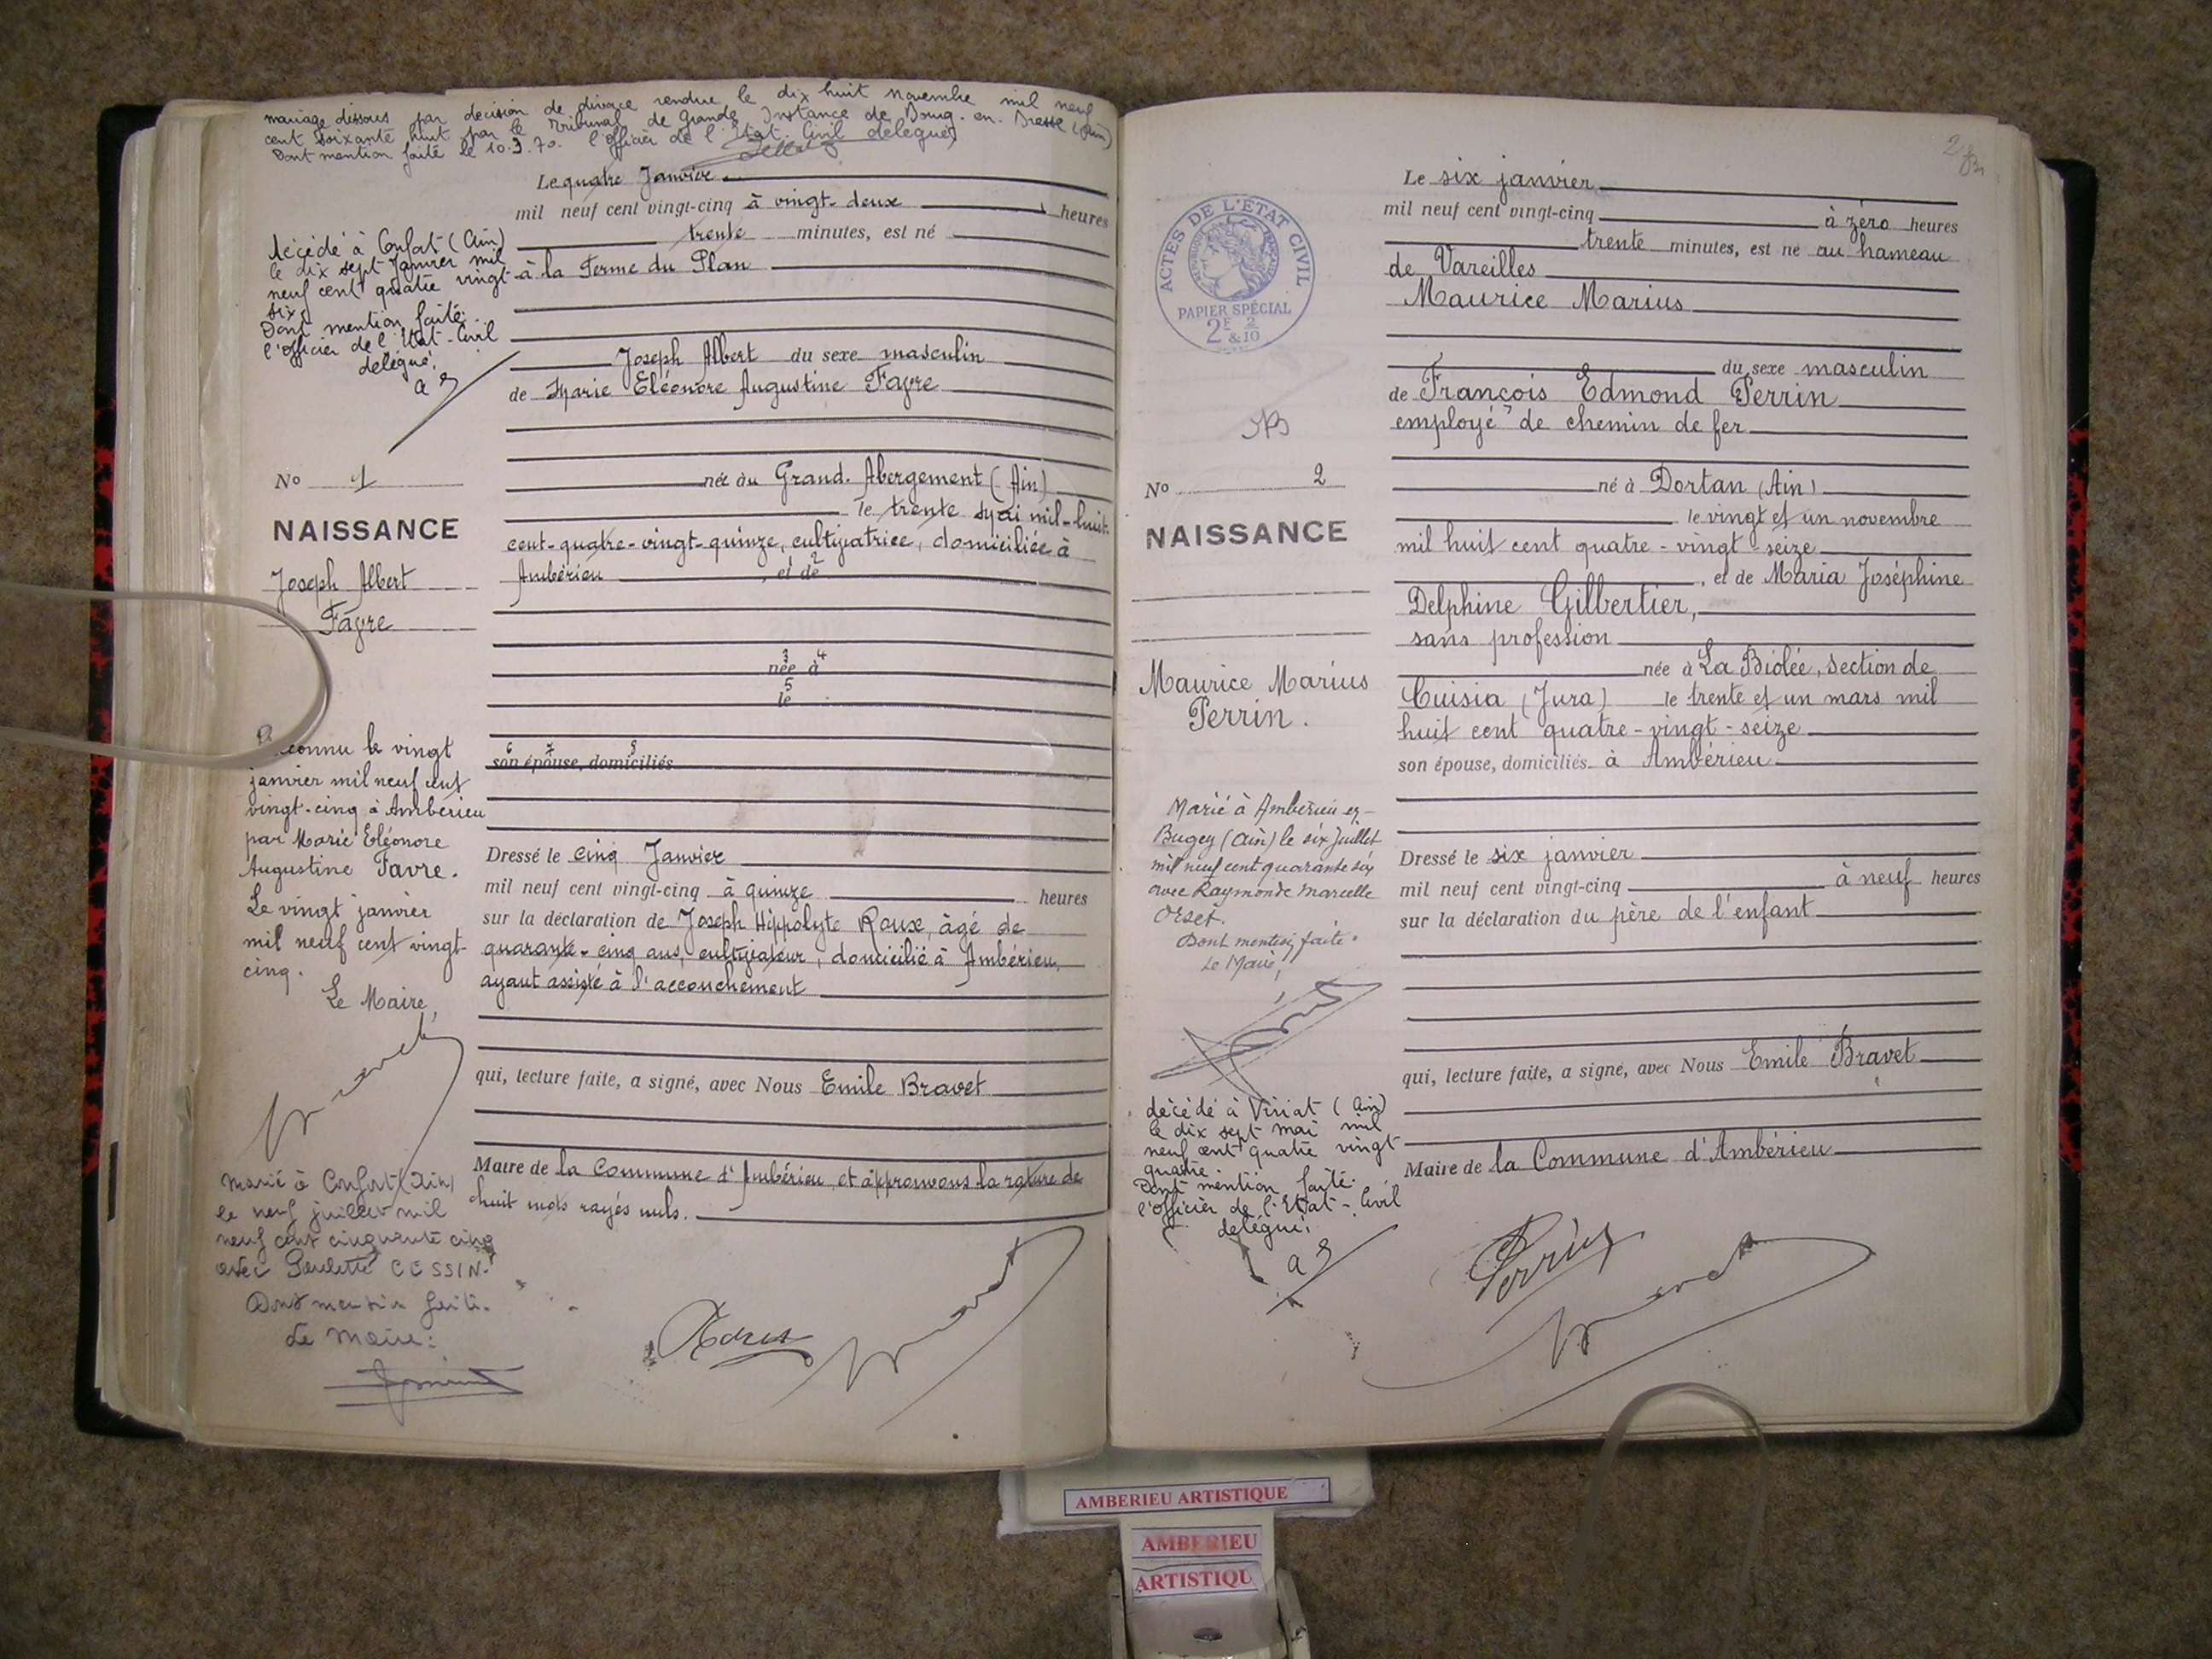 mariage dissous par décision de divorce rendue le dix huit novembre mil neuf
cent soixante huit par le Tribunal de Grande Instance de Bourg. en. Bresse (Ain)
Dont mention faite le 10.3.70. l'officier de l'Etat-Civil délégué
Le quatre Janvier
mil neuf cent vingt-cinq à vingt-deux heures
trente minutes, est né
à la Ferme du Plan
Joseph Albert du sexe masculin
de Marie Eléonore Augustine Favre
née au Grand-Abergement (Ain)
le trente Mai mil-huit-
cent-quatre-vingt-quinze, cultivatrice, domiciliée à
Ambérieu, et de
2
3 4
née à
5
le
6 7 8
son épouse, domiciliés
Dressé le cinq Janvier
mil neuf cent vingt-cinq à quinze heures
sur la déclaration de Joseph Hippolyte Roux, âgé de
quarante-cinq ans, cultivateur, domicilié à Ambérieu,
ayant assisté à l'accouchement
qui, lecture faite, a signé, avec Nous Emile Bravet
Maire de la Commune d'Ambérieu, et approuvons la rature de
huit mots rayés nuls.
décédé à Confort (Ain)
le dix sept Janvier mil
neuf cent quatre vingt
six.
Dont mention faite.
l'officier de l'Etat-Civil
délégué.
No 1
NAISSANCE
Joseph Albert
Favre
Reconnu le vingt
janvier mil neuf cent
vingt-cinq à Ambérieu
par Marie Eléonore
Augustine Favre.
Le vingt janvier
mil neuf cent vingt-
cinq.
Le Maire,
Marié à Confort (Ain)
le neuf juillet mil
neuf cent cinquante cinq
avec Paulette CESSIN.
Dont mention faite.
Le Maire:
2
Le six janvier
mil neuf cent vingt-cinq à zéro heures
trente minutes, est né au hameau
de Vareilles
Maurice Marius
du sexe masculin
de François Edmond Perrin
employé de chemin de fer
né à Dortan (Ain)
le vingt et un novembre
mil huit cent quatre-vingt-seize
, et de Maria Joséphine
Delphine Gilbertier,
sans profession
née à La Biolée, section de
Cuisia (Jura) le trente et un mars mil
huit cent quatre-vingt-seize
son épouse, domiciliés à Ambérieu
Dressé le six janvier
mil neuf cent vingt-cinq à neuf heures
sur la déclaration du père de l'enfant
qui, lecture faite, a signé, avec Nous Emile Bravet
Maire de la Commune d'Ambérieu
Perrin
ACTES DE L'ETAT CIVIL
PAPIER SPECIAL
2E 2
&10
No 2
NAISSANCE
Maurice Marius
Perrin.
Marié à Ambérieu en
Bugey (Ain) le six Juillet
mil neuf cent quarante six
avec Raymonde Marcelle
Orset.
Dont mention faite.
Le Maire,
décédé à Viriat (Ain)
le dix sept mai mil
neuf cent quatre vingt
quatre.
Dont mention faite.
l'officier de l'Etat-Civil
délégué.
AMBERIEU ARTISTIQUE
AMBERIEU
ARTISTIQU